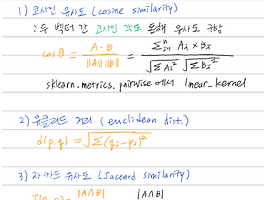 1) 코사인 유사도 (cosine similarity)
: 두 벡터 간 코사인 각도 통해 유사도 구함
cosθ = A·B / ||A|| ||B|| = Σⁿᵢ₌₁ Aᵢ × Bᵢ / √ΣAᵢ² √ΣBᵢ²
sklearn.metrics.pairwise에서 linear_kernel
2) 유클리드 거리 (euclidean dist.)
d(p,q) = √Σ(qᵢ - pᵢ)²
3) 자카드 유사도 (Jaccard similarity)
|A∩B| |A∩B|